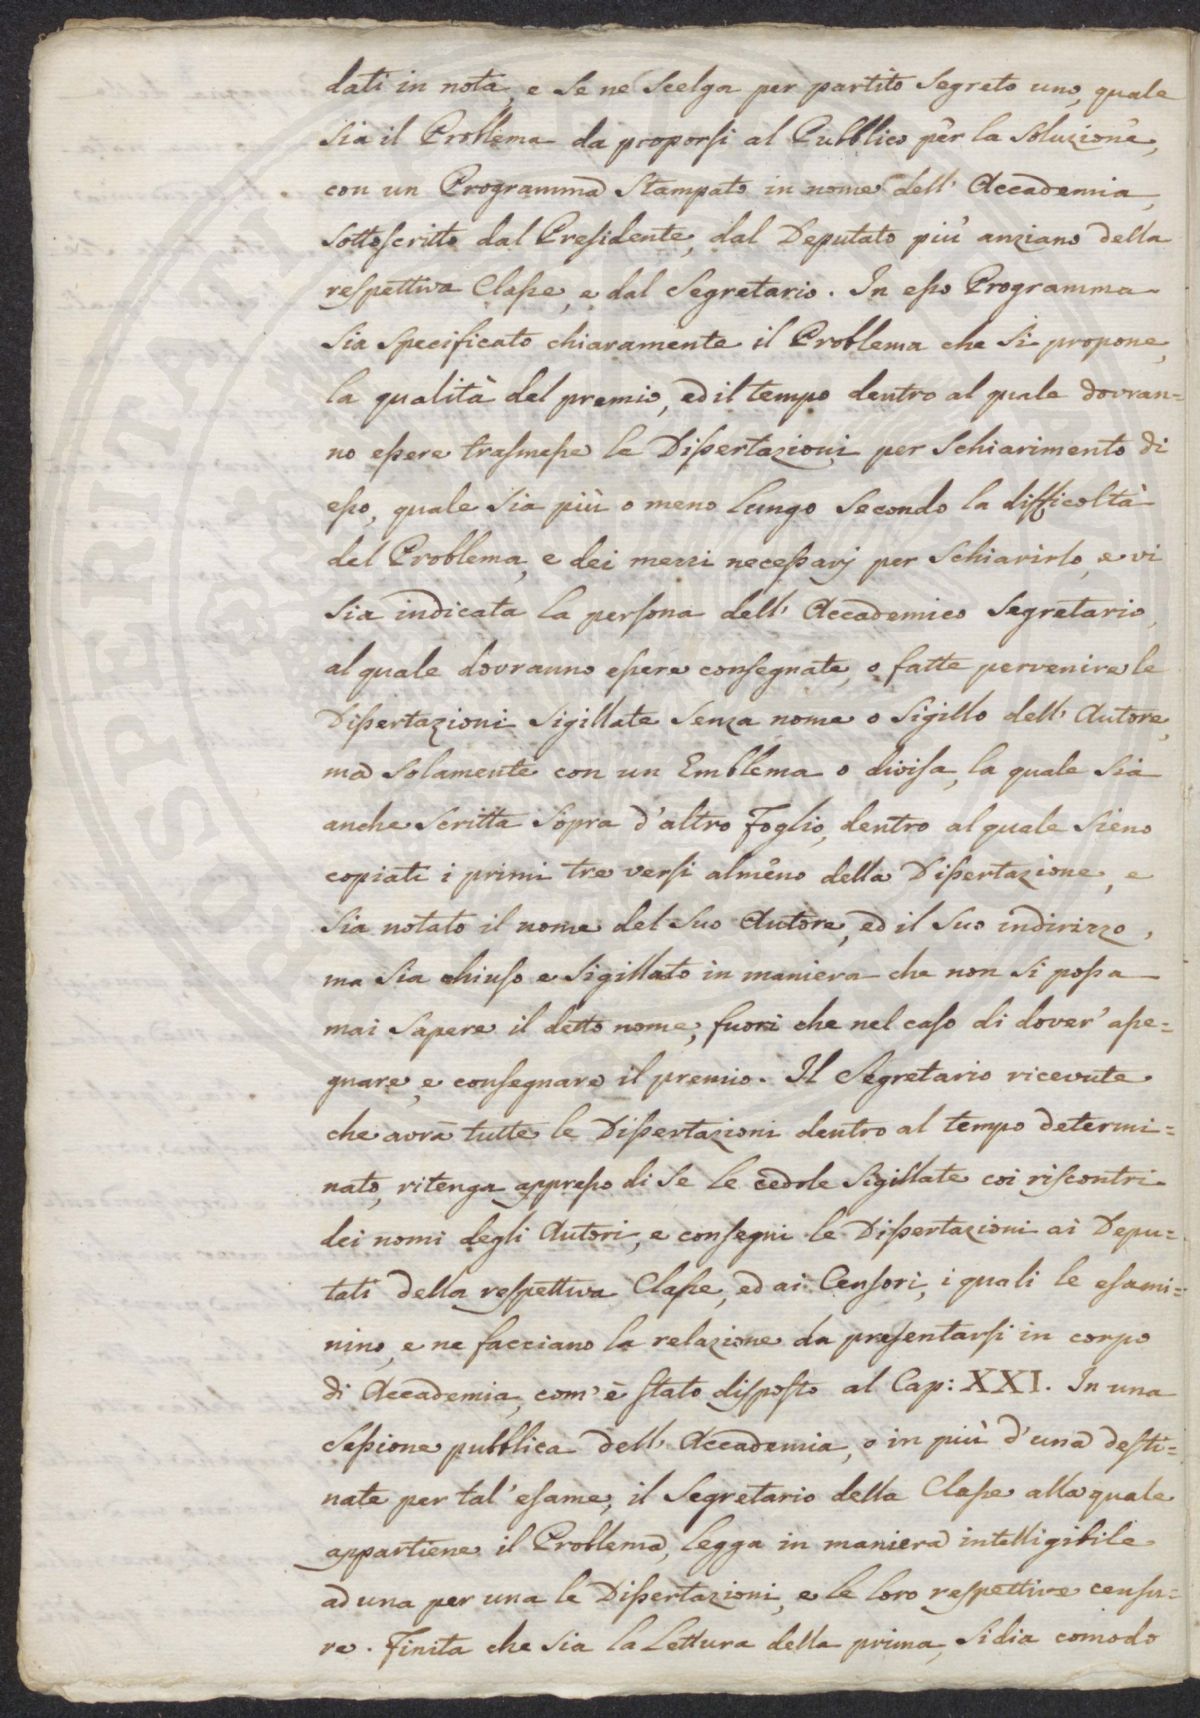 dati in nota, e se ne scelga per partito segreto uno, quale
sia il Problema da proporsi al Pubblico per la soluzione,
con un Programma stampato in nome dell' Accademia,
sottoscritto dal Presidente, dal Deputato più anziano della
respettiva Classe, e dal Segretario. In esso Programma
sia specificato chiaramente il Problema che si propone,
la qualità del premio, ed il tempo dentro al quale dovran=
no essere trasmesse le Dissertazioni per schiarimento di
esso, quale sia più o meno lungo secondo la difficoltà
del Problema, e dei mezzi necessarj per schiarirlo, e vi
sia indicata la persona dell' Accademico Segretario,
al quale dovranno essere consegnate, o fatte pervenire le
Dissertazioni sigillate senza nome o sigillo dell' Autore,
ma solamente con un Emblema o divisa, la quale sia
anche scritta sopra d'altro Foglio, dentro al quale sieno
copiati i primi tre versi almeno della Dissertazione, e
sia notato il nome del suo Autore, ed il suo indirizzo,
ma sia chiuso e sigillato in maniera che non si possa
mai sapere il detto nome, fuori che nel caso di dover' asse=
gnare, e consegnare il premio. Il Segretario ricevute
che avrà tutte le Dissertazioni dentro al tempo determi=
nato, ritenga appresso di se le cedole sigillate coi riscontri
dei nomi degli Autori, e consegni le Dissertazioni ai Depu=
tati della respettiva Classe, ed ai Censori, i quali le esami=
nino, e ne facciano la relazione da presentarsi in corpo
di Accademia, com' è stato disposto al Cap: XXI. In una
sessione pubblica dell' Accademia, o in più d'una desti=
nate per tal' esame, il Segretario della Classe alla quale
appartiene il Problema, legga in maniera intelligibile
ad una per una le Dissertazioni, e le loro respettive censu=
re. Finita che sia la Lettura della prima, si dia comodo